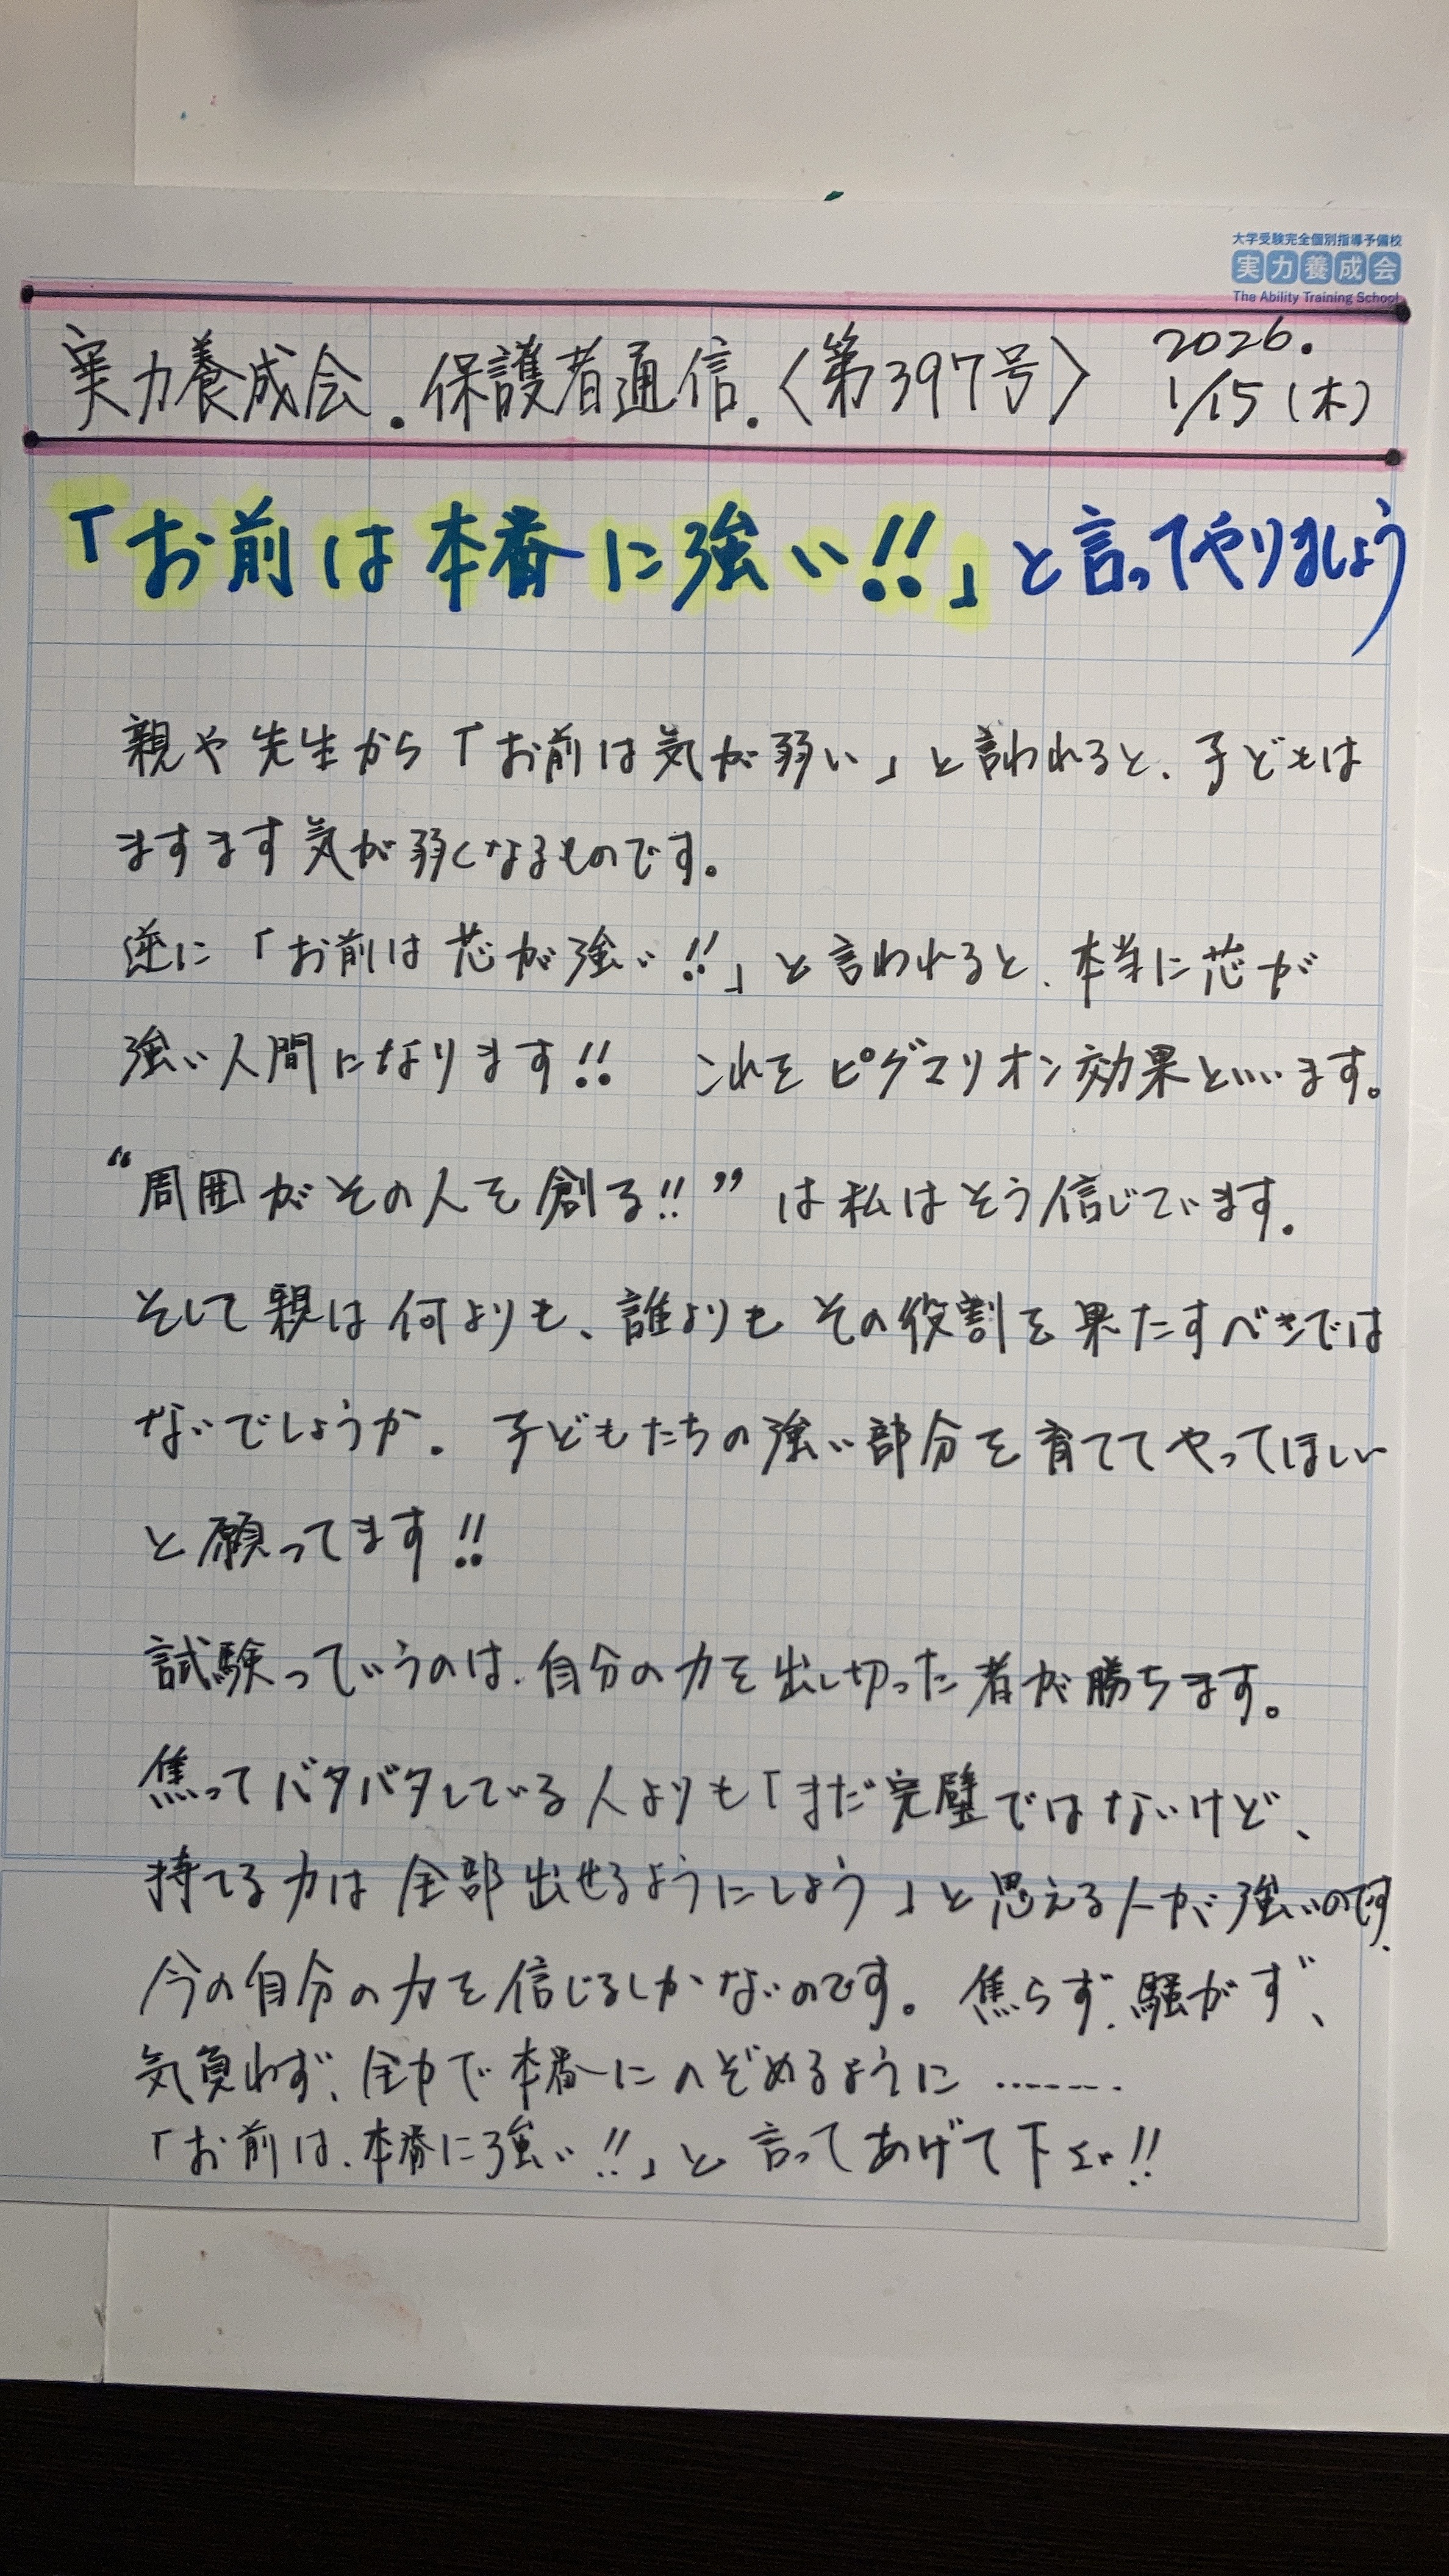 大学受験完全個別指導予備校
実力養成会
The Ability Training School
実力養成会.保護者通信.〈第397号〉
2026.
1/15(木)
「お前は本番に強い!!」と言ってやりましょう
親や先生から「お前は気が弱い」と言われると、子どもは
ますます気が弱くなるものです。
逆に「お前は芯が強い!!」と言われると、本当に芯が
強い人間になります!! これをピグマリオン効果といいます。
“周囲がその人を創る!!”は私はそう信じています。
そして親は何よりも、誰よりもその役割を果たすべきでは
ないでしょうか。子どもたちの強い部分を育ててやってほしい
と願ってます!!
試験っていうのは、自分の力を出し切った者が勝ちます。
焦ってバタバタしている人よりも「まだ完璧ではないけど、
持てる力は全部出せるようにしよう」と思える人が強いのです.
今の自分の力を信じるしかないのです。焦らず、騒がず、
気負わず、全力で本番にのぞめるように…….
「お前は、本番に強い!!」と言ってあげて下さい!!